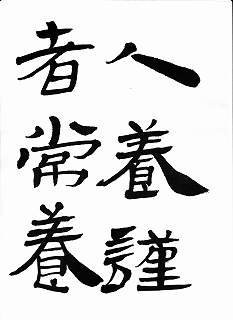 人養謹
者常養